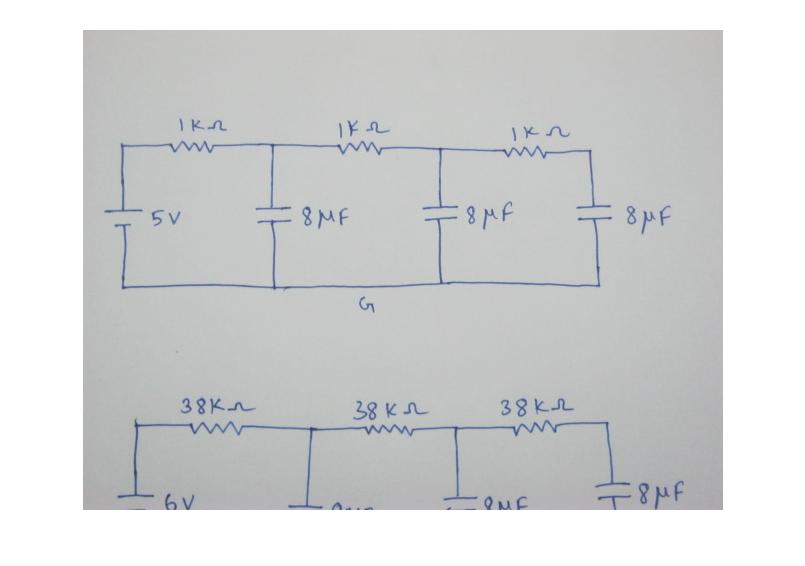 1KΩ 1KΩ 1KΩ
5V 8μF 8μF 8μF
G
38KΩ 38KΩ 38KΩ
6V 8μF 8μF